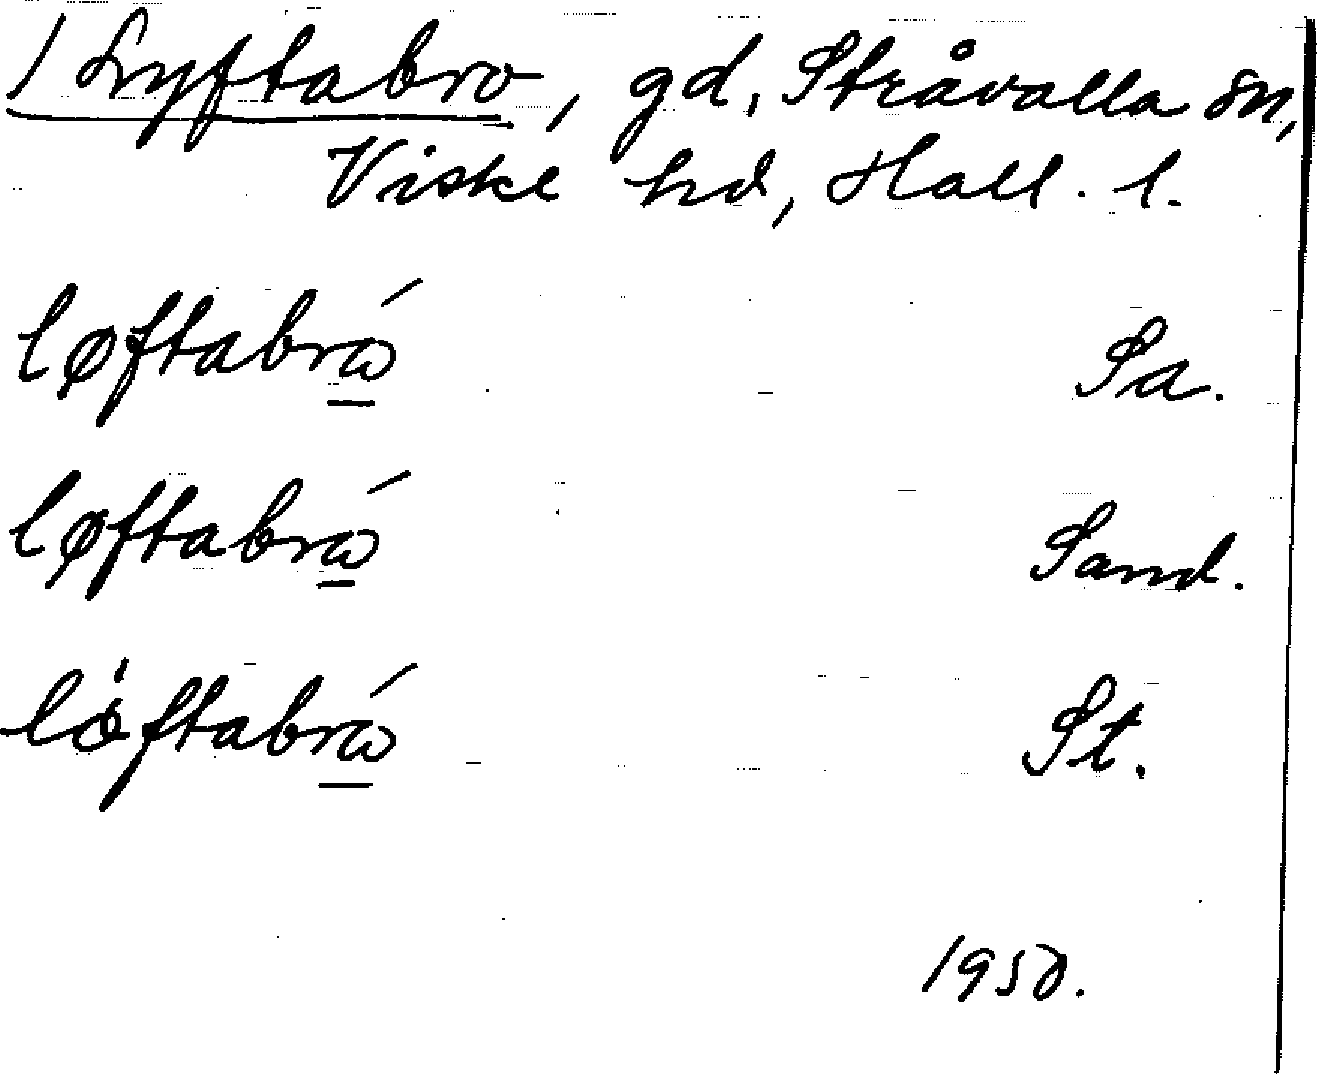 / Lyftabro, gd, Stråvalla sn,
Viske hd, Hall. l.
løftabrώ Sa.
løftabrώ Sand.
lȯ̈ftabrώ St.
1950.